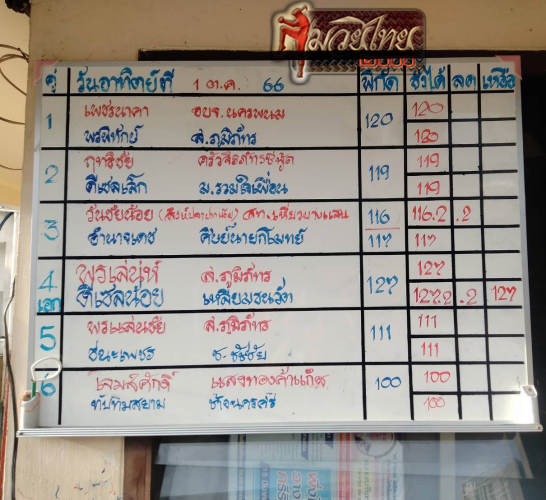 มวยไทย
คู่ วันอาทิตย์ที่ 1 ต.ค. 66 พิกัด ชั่งได้ ลด เหลือ
1 เพชรนาคา อบจ.นครพนม 120 120
พรพิทักษ์ ส.ภูมิภัทร 120
2 ฤทธิชัย 119 119
ดีเซลเล็ก ม.รวมใจเพื่อน 119
3 วันชัยน้อย 116 116.2 .2
อำนาจเดช ศิษย์นายกโมทย์ 117 117
4 พรเสน่ห์ ส.ภูมิภัทร 127 127
เอก ดีเซลน้อย เหลี่ยมธนวัต 127.2 .2 127
5 พรแสนชัย ส.ภูมิภัทร 111 111
ชนะเพชร ช.ชัชชัย 111
6 โสมสักดิ์ แสงทองค้าแก๊ส 100 100
ทับทิมสยาม 100